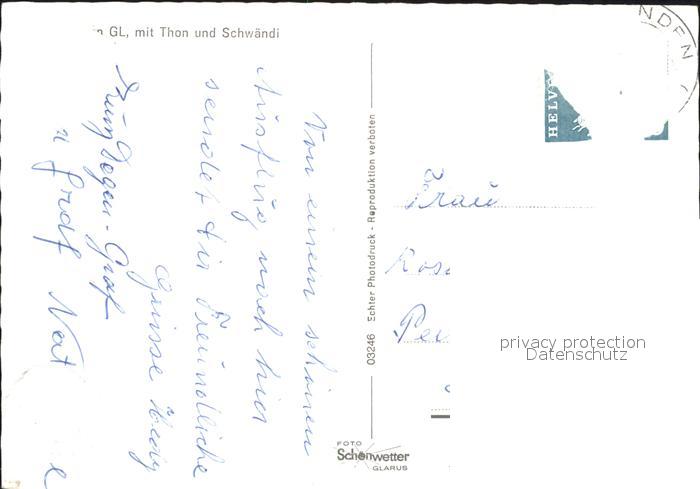 GL, mit Thon und Schwändi
Von einem schönen
Ausflug nach hier
sendet dir Freundliche
Grüsse
Graf
u Graf
03246 Echter Photodruck - Reproduktion verboten
FOTO
Schönwetter
GLARUS
HELV
NDEN
Frau
Rosa
privacy protection
Datenschutz